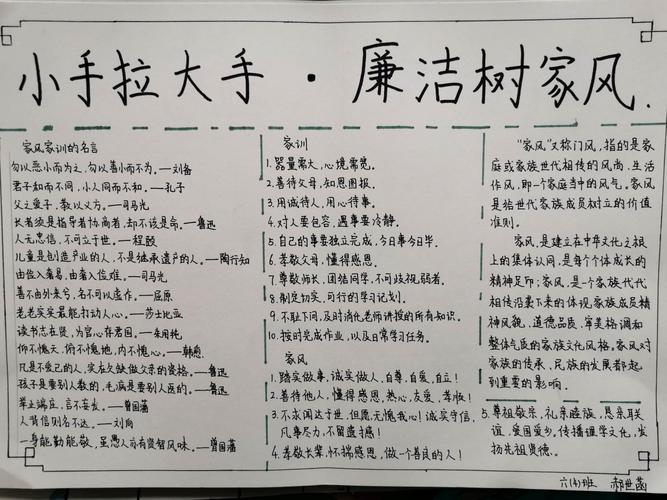 小手拉大手·廉洁树家风.
家风家训的名言
勿以恶小而为之,勿以善小而不为。——刘备
君子和而不同,小人同而不和。——孔子
父之爱子,教以义方。——司马光
长者须是指导者协商者,却不该是命。——鲁迅
人无忠信,不可立于世。——程颐
儿童是创造产业的人,不是继承遗产的人。——陶行知
由俭入奢易,由奢入俭难。——司马光
善不由外来兮,名不可以虚作。——屈原
老老实实最能打动人心。——莎士比亚
读书志在贤,为官心存君国。——朱用纯
仰不愧天,俯不愧地,内不愧心。——韩愈
凡是不爱己的人,实在欠缺做父亲的资格。——鲁迅
孩子是要别人教的,毛病是要别人医的。——鲁迅
举止端庄,言不妄发。——曾国藩
人背信则名不达。——刘向
一身能勤能敬,虽愚人亦有贤智风味。——曾国藩
家训
1.器量需大,心境需宽。
2.善待父母,知恩图报。
3.用诚待人,用心待事。
4.对人要包容,遇事要冷静。
5.自己的事要独立完成,今日事今日毕。
6.孝敬父母,懂得感恩。
7.尊敬师长,团结同学,不可歧视弱者。
8.制定切实,可行的学习计划。
9.不耻下问,及时消化老师讲授的所有知识。
10.按时完成作业,以及日常学习任务。
家风
1.踏实做事,诚实做人,自尊,自爱,自立!
2.善待他人,懂得感恩,热心,友爱,苹愉!
3.不求闻达于世,但愿无愧我心!诚实守信,
凡事尽力,不留遗憾!
4.孝敬长辈,怀揣感恩,做一个善良的人!
"家风"又称门风,指的是家
庭或家族世代相传的风尚,生活
作风,即一个家庭当中的风气。家风
是给世代家族成员树立的价值
准则。
家风,是建立在中华文化之根
上的集体认同,是每个个体成长的
精神足印;家风,是一个家族代代
相传沿袭下来的体现家族成员精
神风貌,道德品质,审美格调和
整体气质的家族文化风格。家风对
家族的传承,民族的发展都起
到重要的影响。
5.尊祖敬宗,礼亲睦族,恩亲联
谊,爱国爱乡,传播理学文化,发
扬先祖贤德。
六(4)班 郝世菡